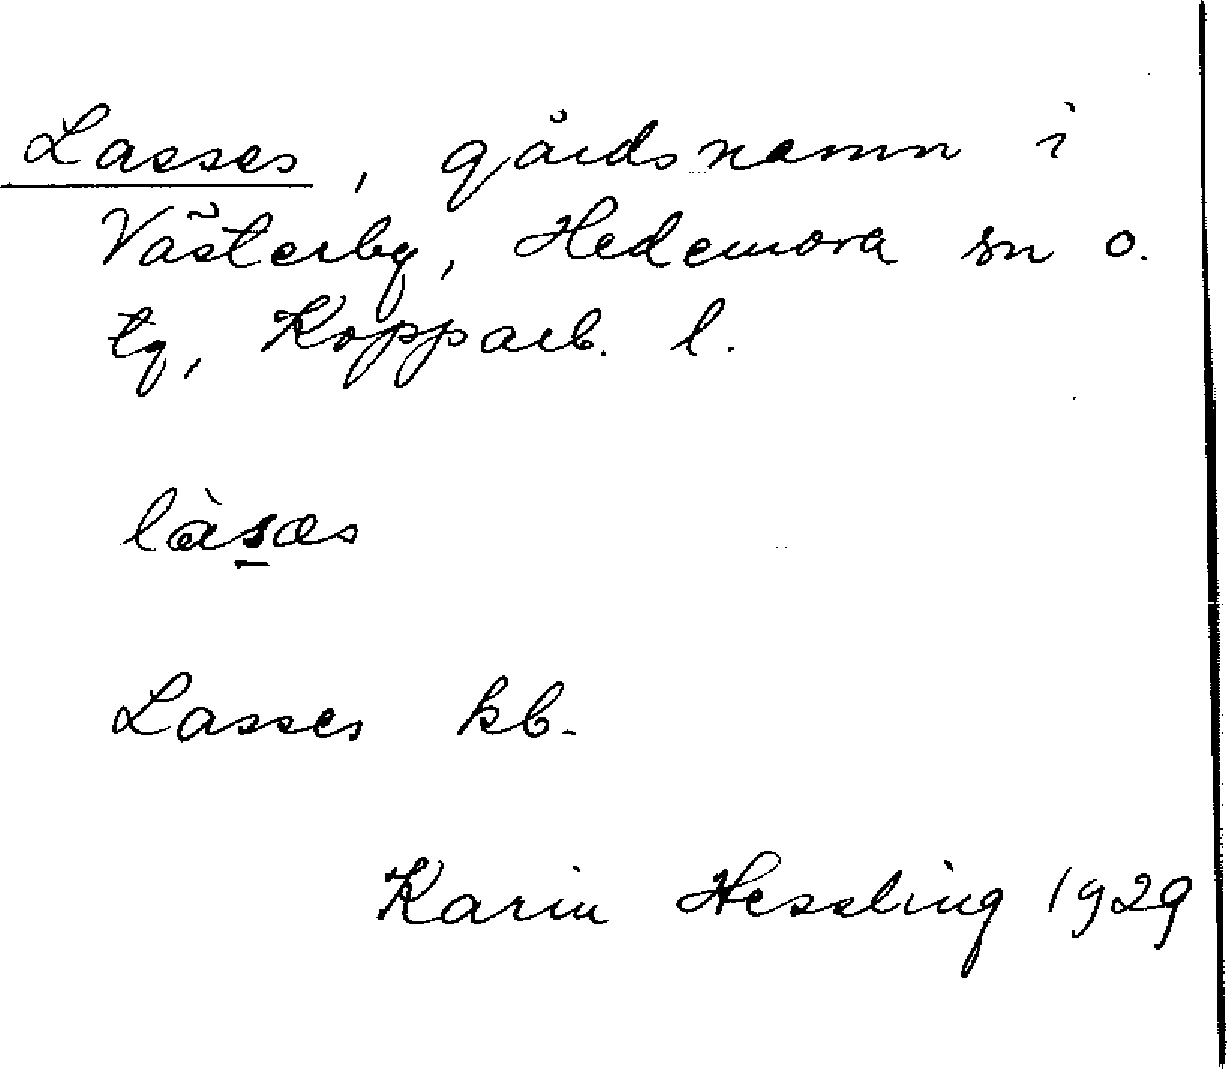 Lasses, gårdsnamn i
Västerby, Hedemora sn o.
tg, Kopparb. l.
làsæs
Lasses kb.
Karin Hessling 1929